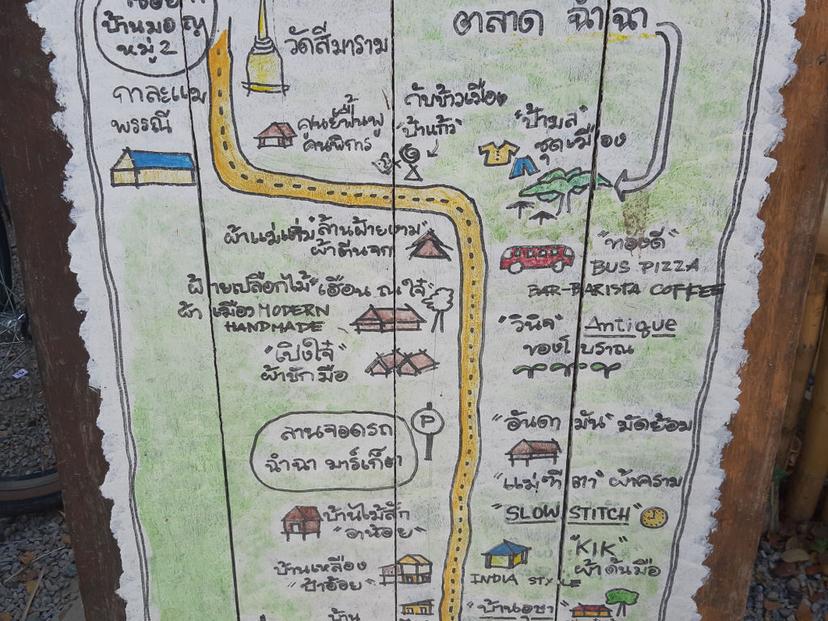 บ้านมอญ
หมู่ 2
ตลาด ฉำฉา
วัดสีมาราม
กาละแม
พรรณี
ศูนย์ฟื้นฟู
คนพิการ
กับข้าวเมือง
"ป้าแก้ว"
"ป้ามล"
ชุดเมือง
ผ้าแม่เต่ม
"ล้านฝ้ายงาม"
ผ้าตีนจก
"ทองดี"
BUS PIZZA
BAR-BARISTA COFFEE
ฝ้ายเปลือกไม้ "เฮือน ณ ใจ๋"
ผ้าเมือง MODERN
HANDMADE
"วินิจ" Antique
ของโบราณ
"เปิงใจ๋"
ผ้าชักมือ
ลานจอดรถ
ฉำฉา มาร์เก็ต
P
"อันดามัน" มัดย้อม
"แม่ฑีตา" ผ้าคราม
"SLOW STITCH"
บ้านไม้สัก
"อาน้อย"
"KIK"
ผ้าด้นมือ
INDIA STYLE
บ้านเหลือง
"ป้าอ้อย"
"บ้านอุษา"
บ้าน